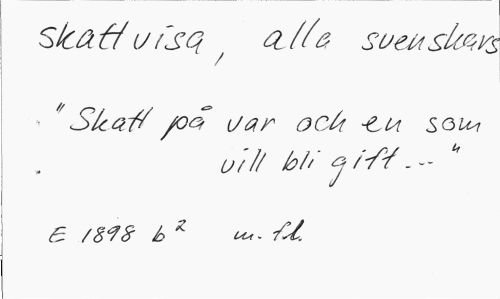 Skattvisa, alla svenskars
"Skatt på var och en som
vill bli gift..."
E 1898 b² m.fl.